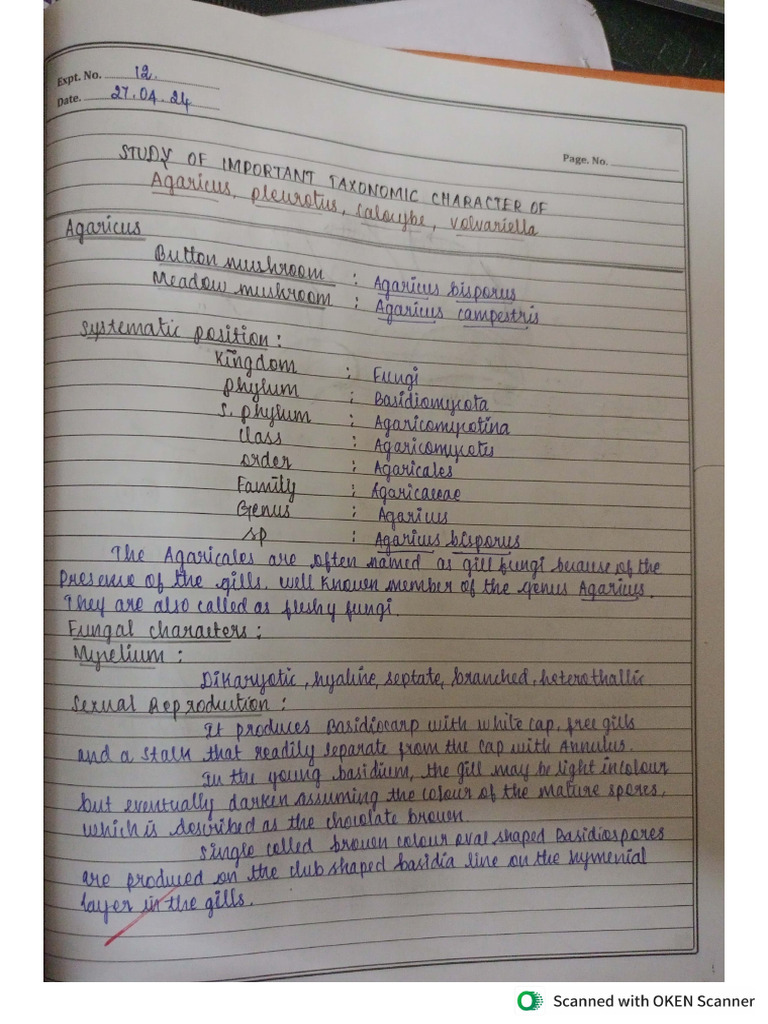 Expt. No. 12.
Date. 27.04.24
Page. No.
STUDY OF IMPORTANT TAXONOMIC CHARACTER OF
Agaricus, pleurotus, calocybe, volvariella
Agaricus
Button mushroom : Agaricus bisporus
Meadow mushroom : Agaricus campestris
Systematic position :
Kingdom : Fungi
phylum : Basidiomycota
S. phylum : Agaricomycotina
class : Agaricomycetes
order : Agaricales
Family : Agaricaceae
Genus : Agaricus
sp : Agaricus bisporus
The Agaricales are often named as gill fungi because of the
Presence of the gills. well known member of the genus Agaricus.
They are also called as fleshy fungi.
Fungal characters :
Mycelium :
Dikaryotic, hyaline, septate, branched, heterothallic
Sexual Reproduction :
It produces Basidiocarp with white cap, free gills
and a stalk that readily separate from the cap with Annulus.
In the young basidium, the gill may be light in colour
but eventually darken assuming the colour of the mature spores,
which is described as the chocolate brown.
Single celled brown colour oval shaped Basidiospores
are produced on the club shaped basidia line on the hymenial
layer in the gills.
Scanned with OKEN Scanner